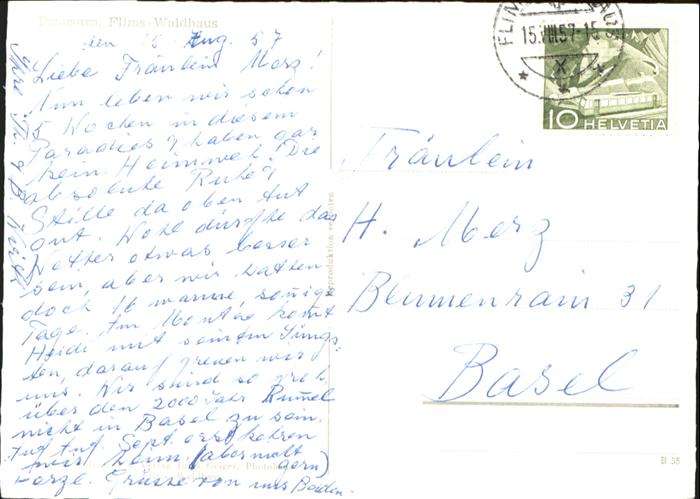 Flims-Waldhaus
den 15. Aug. 57
Liebe Fräulein Merz!
Nun leben wir schon
5 Wochen in diesem
Paradies & haben gar
kein Heimweh. Die
absolute Ruhe &
Stille da oben tut
gut. Wohl dürfte das
Wetter etwas besser
sein, aber wir hatten
doch 16 warme, sonnige
Tage. Im Montag kommt
Heidi mit seinem Jüngs-
ten, darauf freuen wir
uns. Wir sind so froh
über den 2000 Jahr Rummel
nicht in Basel zu sein.
Anf. Sept. erst kehren
wir heim. (aber nicht gern)
Herzl. Grüsse von uns Beiden.
Ihre
FLIMS WALDHAUS
15.VIII.57-15
10 HELVETIA
Fräulein
H. Merz
Blumenrain 31
Basel
Reproduktion verboten
B 35